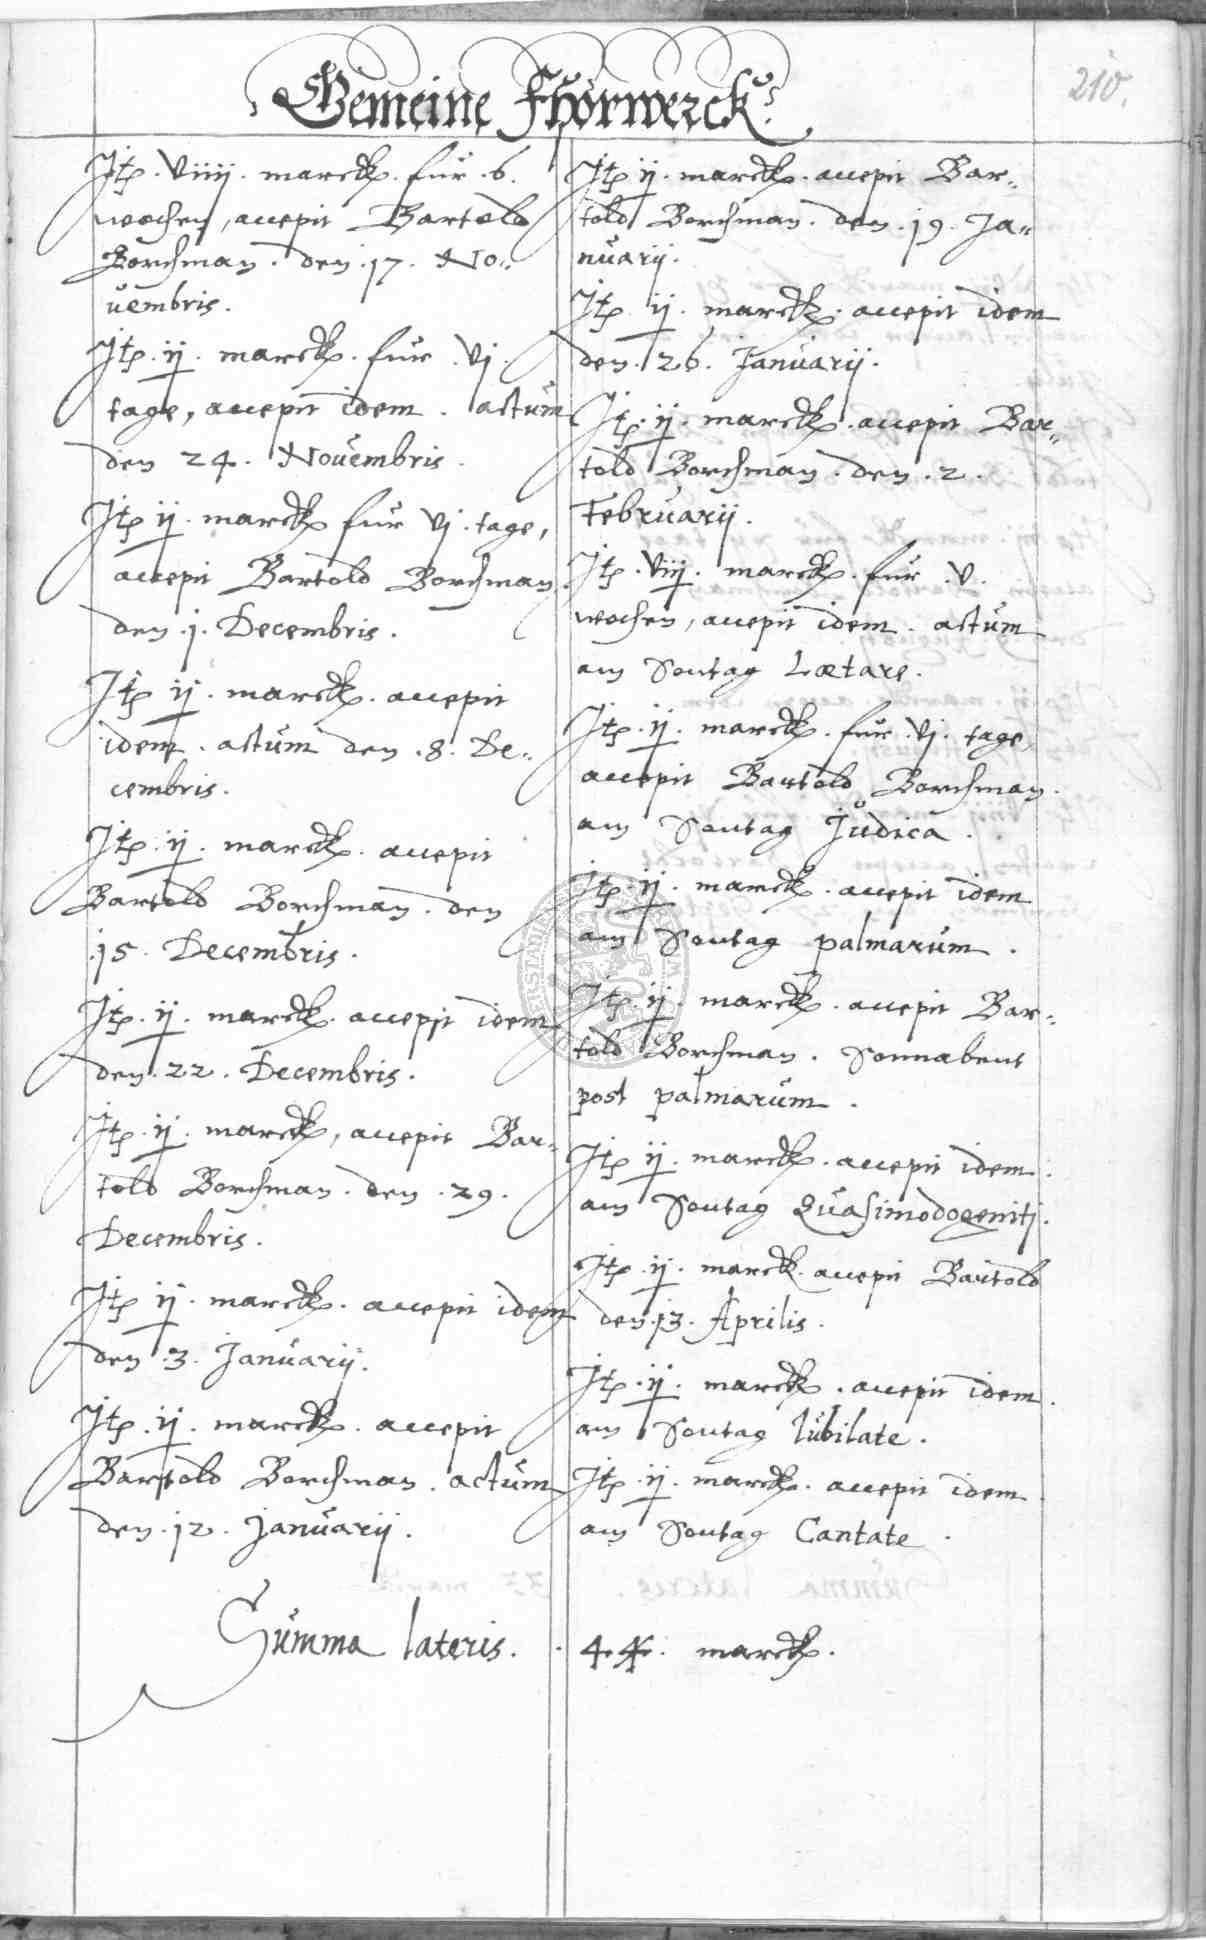 210.
Gemeine Fhörwerck.
Jtz. viiij. marck. für .6.
wochen, accepit Bartold
Borchman. den .17. No„
uembris.
Jtz. ij. marck. für .vj.
tage, accepit idem. actum
den 24. Nouembris.
Jtz ij. marck für vj. tage,
accepit Bartold Borchman
den .1. Decembris.
Jtz ij. marck. accepit
idem. actum den .8. De„
cembris.
Jtz. ij. marck. accepit
Bartold Borchman. den
.15. Decembris.
Jtz. ij. marck. accepit idem
den .22. Decembris.
Jtz. ij. marck, accepit Bar„
told Borchman. den .29.
Decembris.
Jtz ij. marck. accepit idem
den .3. Januarij.
Jtz. ij. marck. accepit
Bartold Borchman. actum
den .12. Januarij.
Jtz ij. marck. accepit Bar„
told Borchman. den .19. Ja„
nuarij.
Jtz. ij. marck. accepit idem
den .26. Januarij.
Jtz. ij. marck. accepit Bar„
told Borchman. den .2.
Februarij.
Jtz. viij. marck. für .v.
wochen, accepit idem. actum
am Sontag Lætare.
Jtz. ij. marck. für .vj. tage,
accepit Bartold Borchman.
am Sontag Judica.
Jtz. ij. marck. accepit idem
am Sontag palmarum.
Jtz. ij. marck. accepit Bar„
told Borchman. Sonnabent
post palmarum.
Jtz ij. marck. accepit idem.
am Sontag Quasimodogeniti.
Jtz. ij. marck. accepit Bartold
den .13. Aprilis.
Jtz. ij. marck. accepit idem.
am Sontag Iubilate.
Jtz. ij. marck. accepit idem
am Sontag Cantate.
Summa lateris. 44. marck.